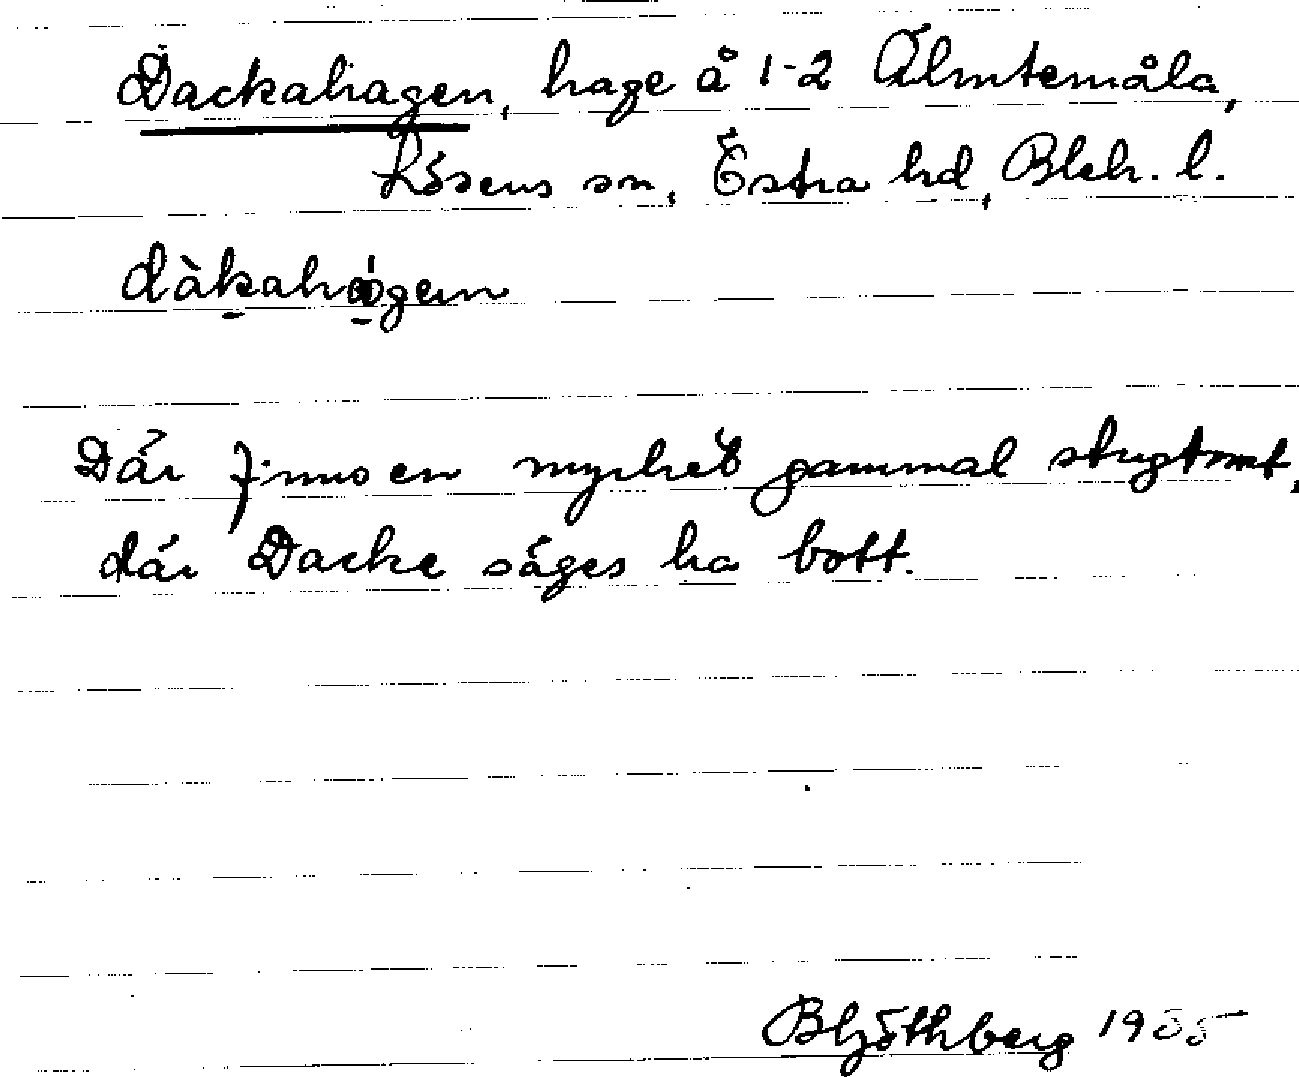 Dackahagen, hage å 1-2 Älmtemåla,
Lösens sn, Östra hd, Blek. l.
dàkahágen
Där finns en mycket gammal stugtomt,
där Dacke säges ha bott.
B Ljöthberg 1955